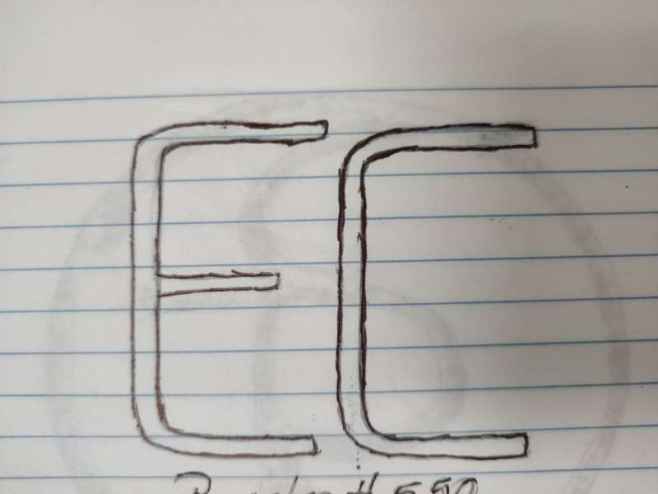 EC
# 550